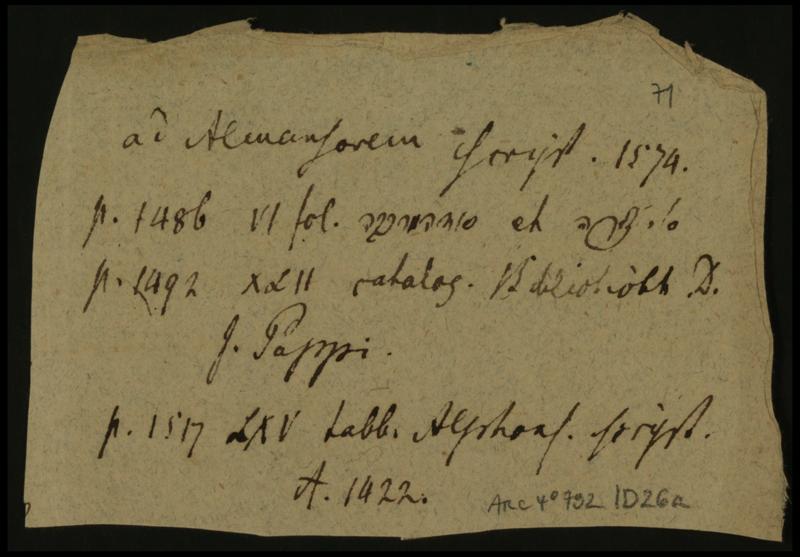 71
ad Almansorem script. 1574.
p. 1486 VI fol. et
p. 1492 XLII catalog. Biblioth D.
J. Pappi.
p. 1517 LXV tabb. Alphons. script.
A. 1422.
ARC 4° 792 ID26a